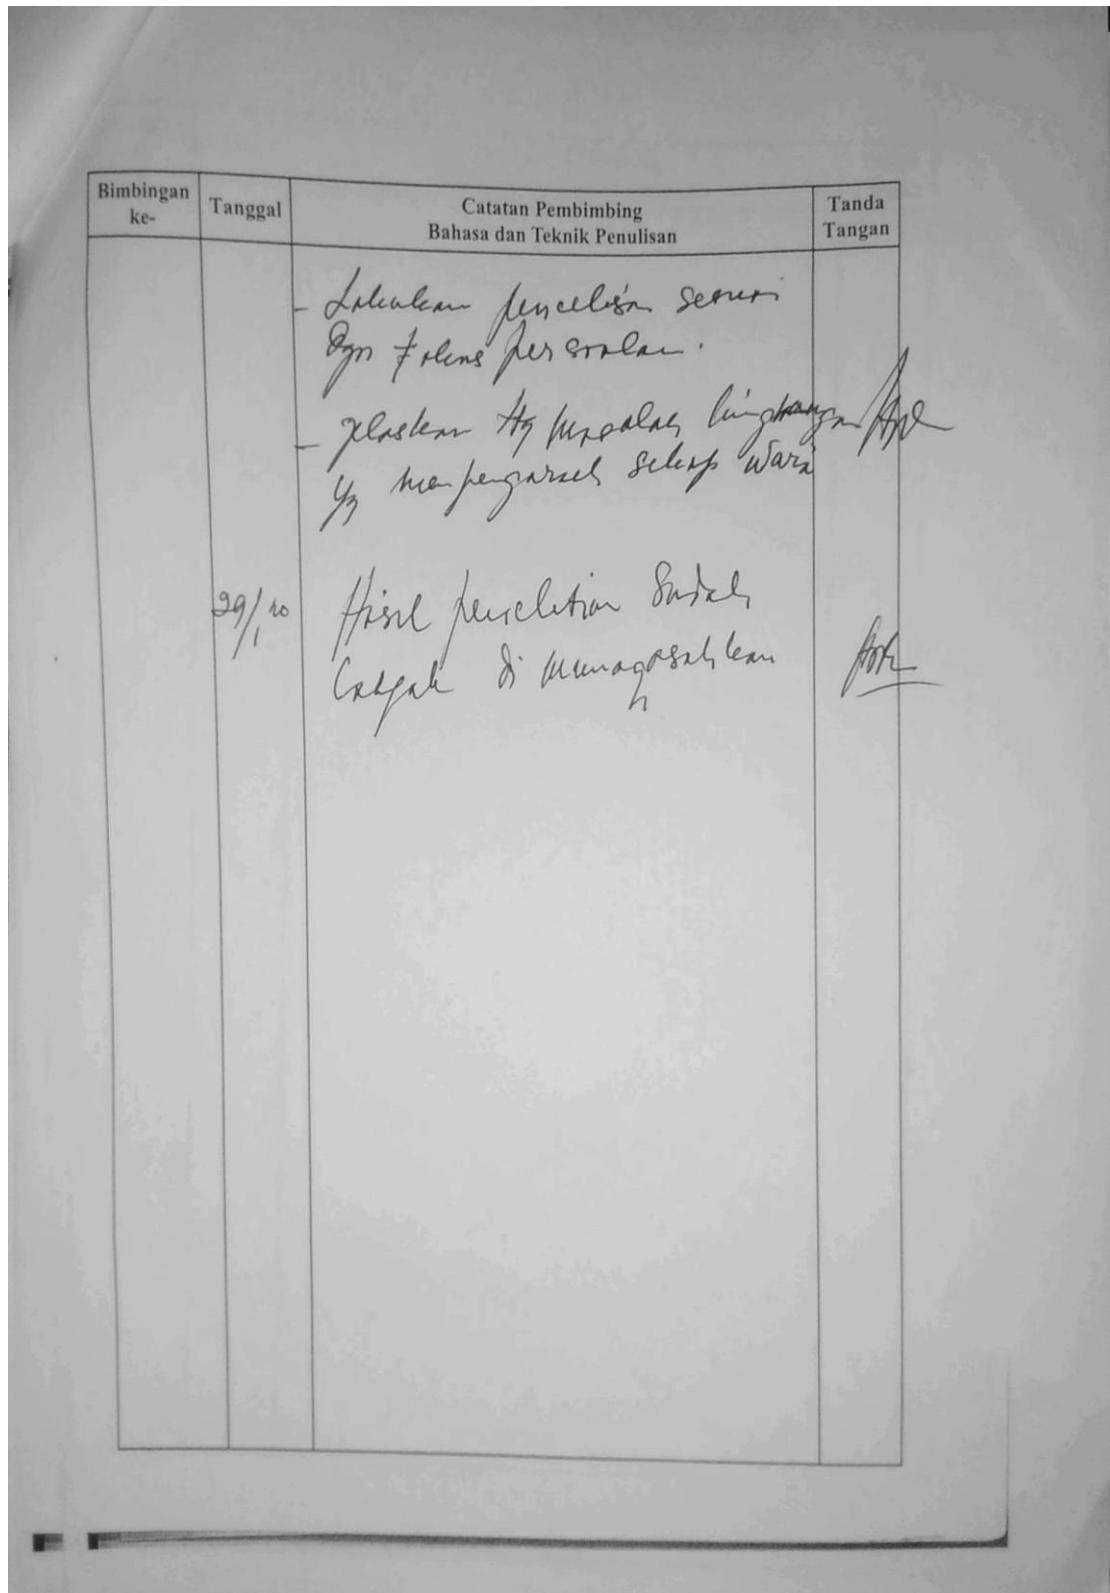 Bimbingan
ke-
Tanggal
Catatan Pembimbing
Bahasa dan Teknik Penulisan
Tanda
Tangan
- Lakukan penelitian sesuai
Dgn fokus persoalan.
- Jelaskan ttg masalah lingkungan
yg mempengaruh sikap
29/1 20
Hasil penelitian Sudah
di munaqosahkan